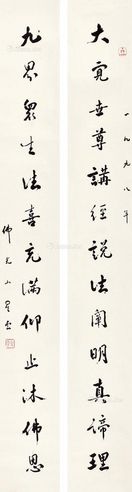 一九九八年
大覺世尊講經說法闡明真諦理
九界眾生法喜充滿仰止沐佛恩
佛光山星雲